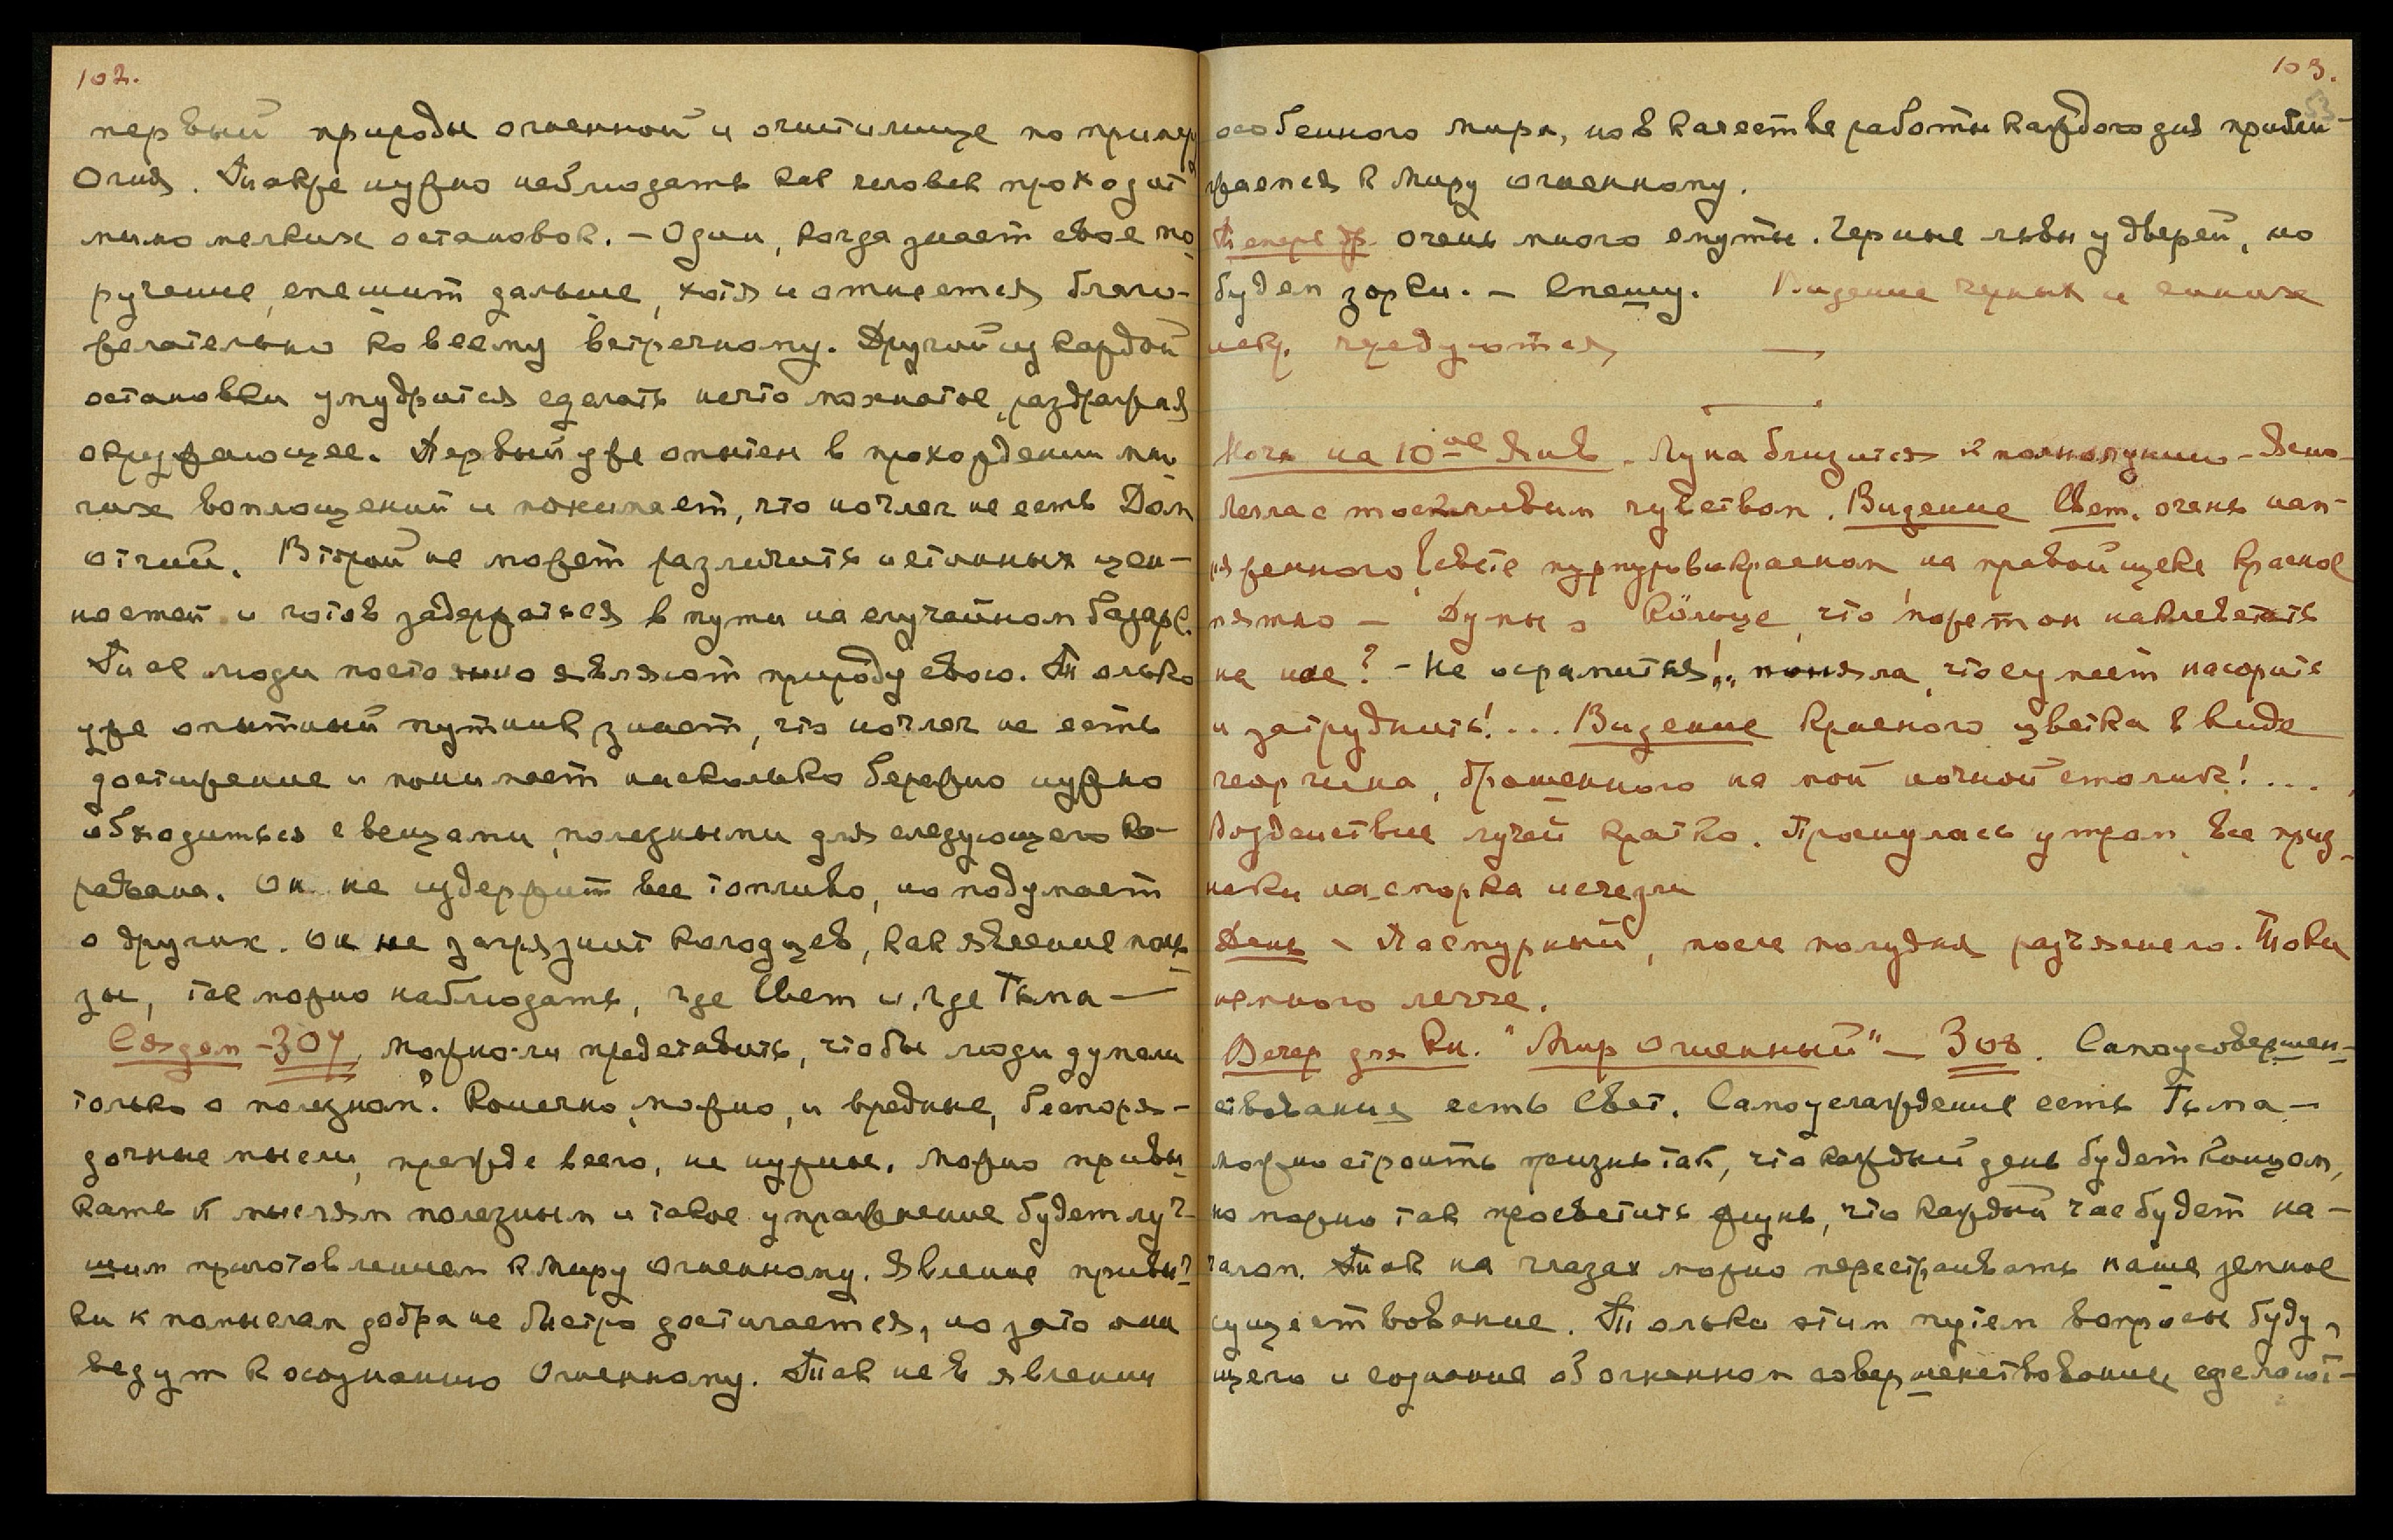 102.
первый природы огненной и очистилище по примеру
Огня. Также нужно наблюдать как человек проходит
мимо мелких остановок. – Один, когда знает свое по-
ручение, спешит дальше, хотя и отнесется благо-
желательно ко всему встречному. Другой из каждой
остановки умудрится сделать нечто мохнатое, раздражая
окружающее. Первый уже опытен в прохождении мно-
гих воплощений и понимает, что ночлег не есть Дом
отчий. Второй не может различить истинных цен-
ностей и готов задержаться в пути на случайном базаре.
Так люди постоянно являют природу свою. Только
уже опытный путник знает, что ночлег не есть
достижение и понимает насколько бережно нужно
обходиться с вещами, полезными для следующего ка-
равана. Он не издержит все топливо, но подумает
о других. Он не загрязнит колодцев, как явление поль-
зы, так можно наблюдать, где Свет и где Тьма —
Создам – 307, Можно-ли представить, чтобы люди думали
только о полезном? Конечно, можно, и вредные, беспоря-
дочные мысли, прежде всего, не нужны. Можно привы-
кать к мыслям полезным и такое упражнение будет луч-
шим приготовлением к Миру Огненному. Явление привыч-
ки к помыслам добра не быстро достигается, но зато они
ведут к осознанию Огненному. Так не в явлении
103.
53
особенного мира, но в качестве работы каждого дня прибли-
жаемся к Миру огненному.
Теперь др. очень много смуты. Черные львы у дверей, но
будем зорки. – Спешу. Видение черных и синих
искр. чередуются —
Ночь на 10-ое Янв. Луна близится к полнолунию – Ясно
Легла с тоскливым чувством. Видение Свет. очень нап-
ряженного, в свете пурпурово красном, на правой щеке красное
пятно – Думы о Кольце, что может он наклеветать
на нас? – Не осрамиться!,, поняла, что сумеет насорить
и затруднить!... Видение красного цветка в виде
георгина, брошенного на мой ночной столик!...
Воздействие лучей кратко. Проснулась утром, все приз-
наки насморка исчезли
День – Пасмурный, после полудня разъяснело. Токи
немного легче.
Вечер для Кн. "Мир Огненный" – 308. Самоусовершен-
ствование есть Свет. Самоуслаждение есть Тьма –
Можно строить жизнь так, что каждый день будет концом,
но можно так просветить жизнь, что каждый час будет на-
чалом. Так на глазах можно перестраивать наше земное
существование. Только этим путем вопросы буду-
щего и сознание об огненном совершенствовании сделают-